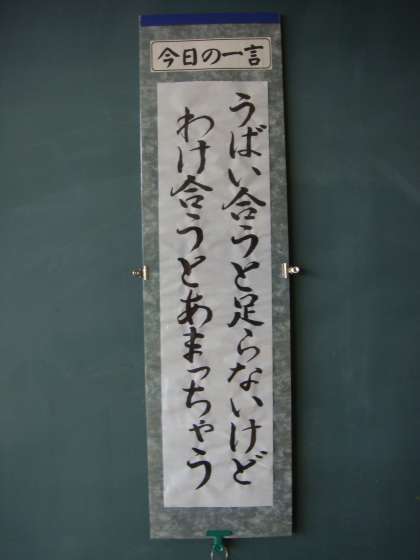 今日の一言
うばい合うと足らないけど
わけ合うとあまっちゃう